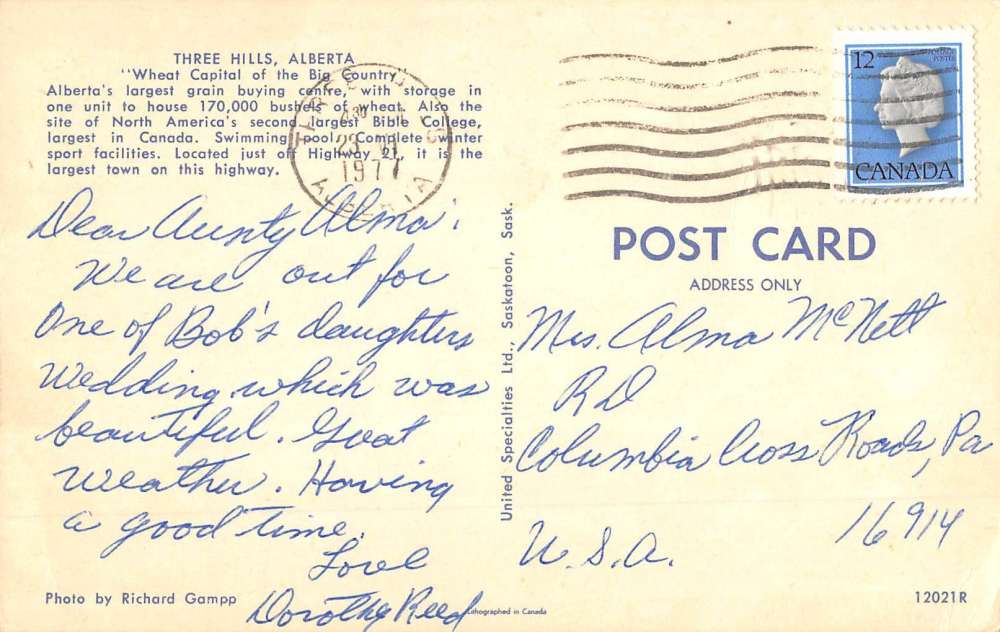 THREE HILLS, ALBERTA
"Wheat Capital of the Big Country"
Alberta's largest grain buying centre, with storage in
one unit to house 170,000 bushels of wheat. Also the
site of North America's second largest Bible College,
largest in Canada. Swimming pool. Complete winter
sport facilities. Located just off Highway 21, it is the
largest town on this highway.
Dear Aunty Alma:
We are out for
One of Bob's daughters
Wedding which was
beautiful. Great
Weather. Having
a good time.
Love
Dorothy Reed
Photo by Richard Gampp
United Specialties Ltd., Saskatoon, Sask.
Lithographed in Canada
THREE HILLS
23
1977
ALBERTA
12
POSTAGE
POSTES
CANADA
POST CARD
ADDRESS ONLY
Mrs. Alma McNett
RD
Columbia Cross Roads, Pa
16914
U.S.A.
12021R